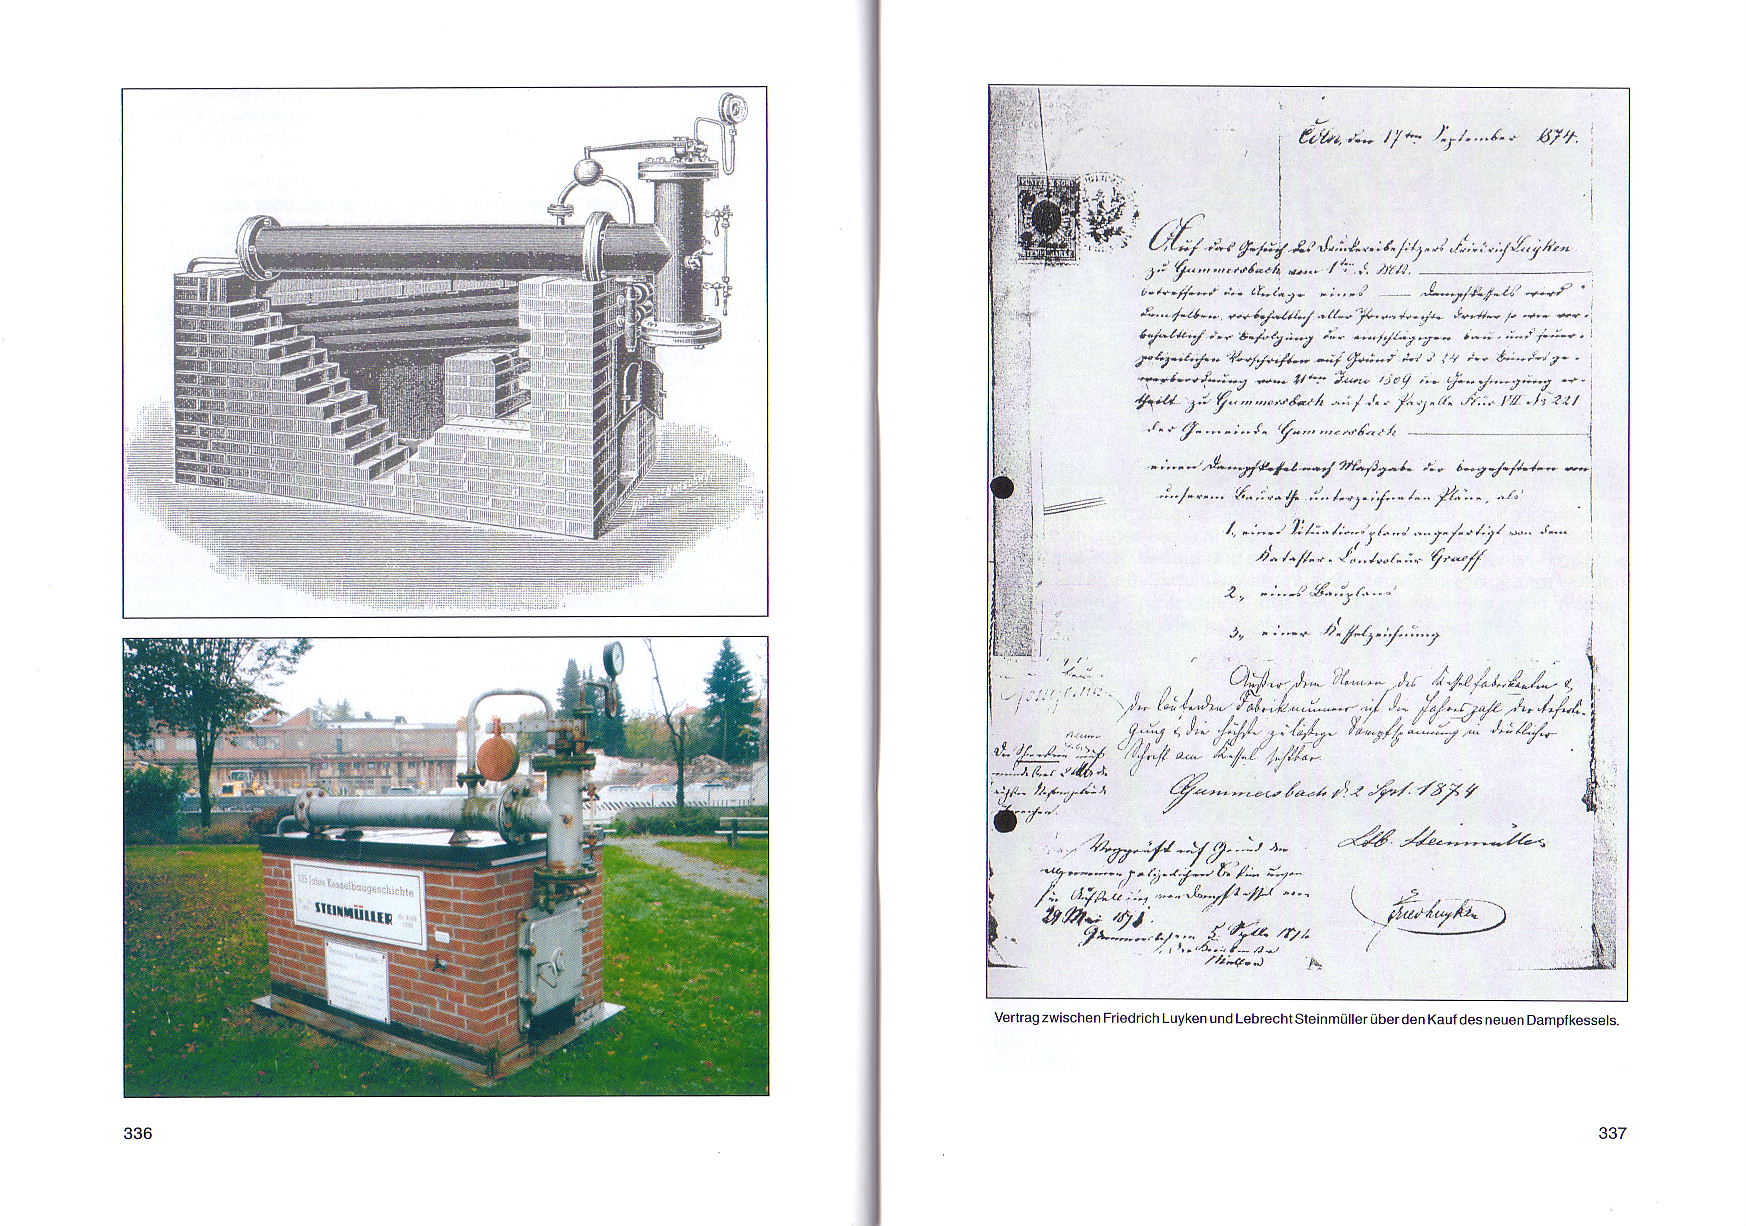 125 Jahre Kesselbaugeschichte
STEINMÜLLER
336
Cöln, den 17ten September 1874.
Auf das Gesuch des Druckereibesitzers Friedrich Luyken
zu Gummersbach vom 1ten d. Mts.
betreffend die Anlage eines — Dampfkessels wird
demselben, vorbehaltlich aller Privatrechte Dritter so wie vor-
behaltlich der Befolgung der einschlägigen bau- und feuer-
polizeilichen Vorschriften auf Grund des § 24 der Bundesge-
werbeordnung vom 21ten Juni 1869 die Genehmigung er-
theilt zu Gummersbach auf der Parzelle Flur VII No 221
der Gemeinde Gummersbach
einen Dampfkessel nach Maßgabe der angehefteten von
unserem Baurathe unterzeichneten Pläne, als
1., eines Situationsplans angefertigt von dem
Kataster-Controleur Graeff
2., eines Bauplans
3., einer Kesselzeichnung
Außer dem Namen des Kesselfabrikanten &
der laufenden Fabriknummer ist die Jahreszahl der Anferti-
gung & die höchste zulässige Dampfspannung in deutlicher
Schrift am Kessel sichtbar.
Gummersbach d. 2 Spt. 1874
Lbb. Steinmüller
Vorgeprüft auf Grund der
allgemeinen polizeilichen Bestimmungen
die Aufstellung von Dampfkessel vom
29 Mai 1871.
Gummersbach 5. 1874
Fried Luyken
Vertrag zwischen Friedrich Luyken und Lebrecht Steinmüller über den Kauf des neuen Dampfkessels.
337